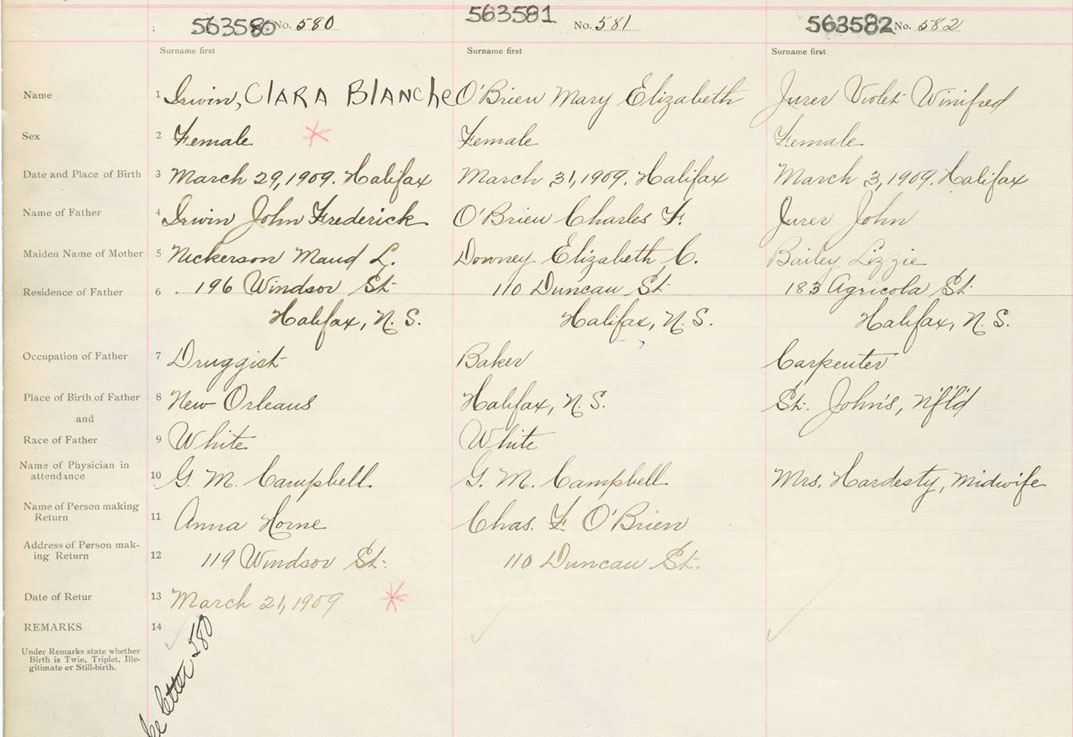 563580 No. 580 563581 No. 581 563582 No. 582
Surname first Surname first Surname first
Name 1 Irwin, CLARA BLANCHE O'Brien Mary Elizabeth Jurer Violet Winifred
Sex 2 Female Female Female
Date and Place of Birth 3 March 29, 1909. Halifax March 31, 1909. Halifax March 3, 1909. Halifax
Name of Father 4 Irwin John Frederick O'Brien Charles F. Jurer John
Maiden Name of Mother 5 Nickerson Maud L. Downey Elizabeth C. Bailey Lizzie
Residence of Father 6 196 Windsor St. 110 Duncan St 183 Agricola St.
Halifax, N. S. Halifax, N. S. Halifax, N. S.
Occupation of Father 7 Druggist Baker Carpenter
Place of Birth of Father 8 New Orleans Halifax, N. S. St. John's, Nfl'd
and
Race of Father 9 White White
Name of Physician in
attendance 10 G. M. Campbell. G. M. Campbell. Mrs. Hardesty, Midwife
Name of Person making
Return 11 Anna Horne Chas. F O'Brien
Address of Person mak-
ing Return 12 119 Windsor St. 110 Duncan St.
Date of Retur 13 March 21, 1909
REMARKS 14
Under Remarks state whether
Birth is Twin, Triplet, Ille-
gitimate or Still-birth.
letter 580